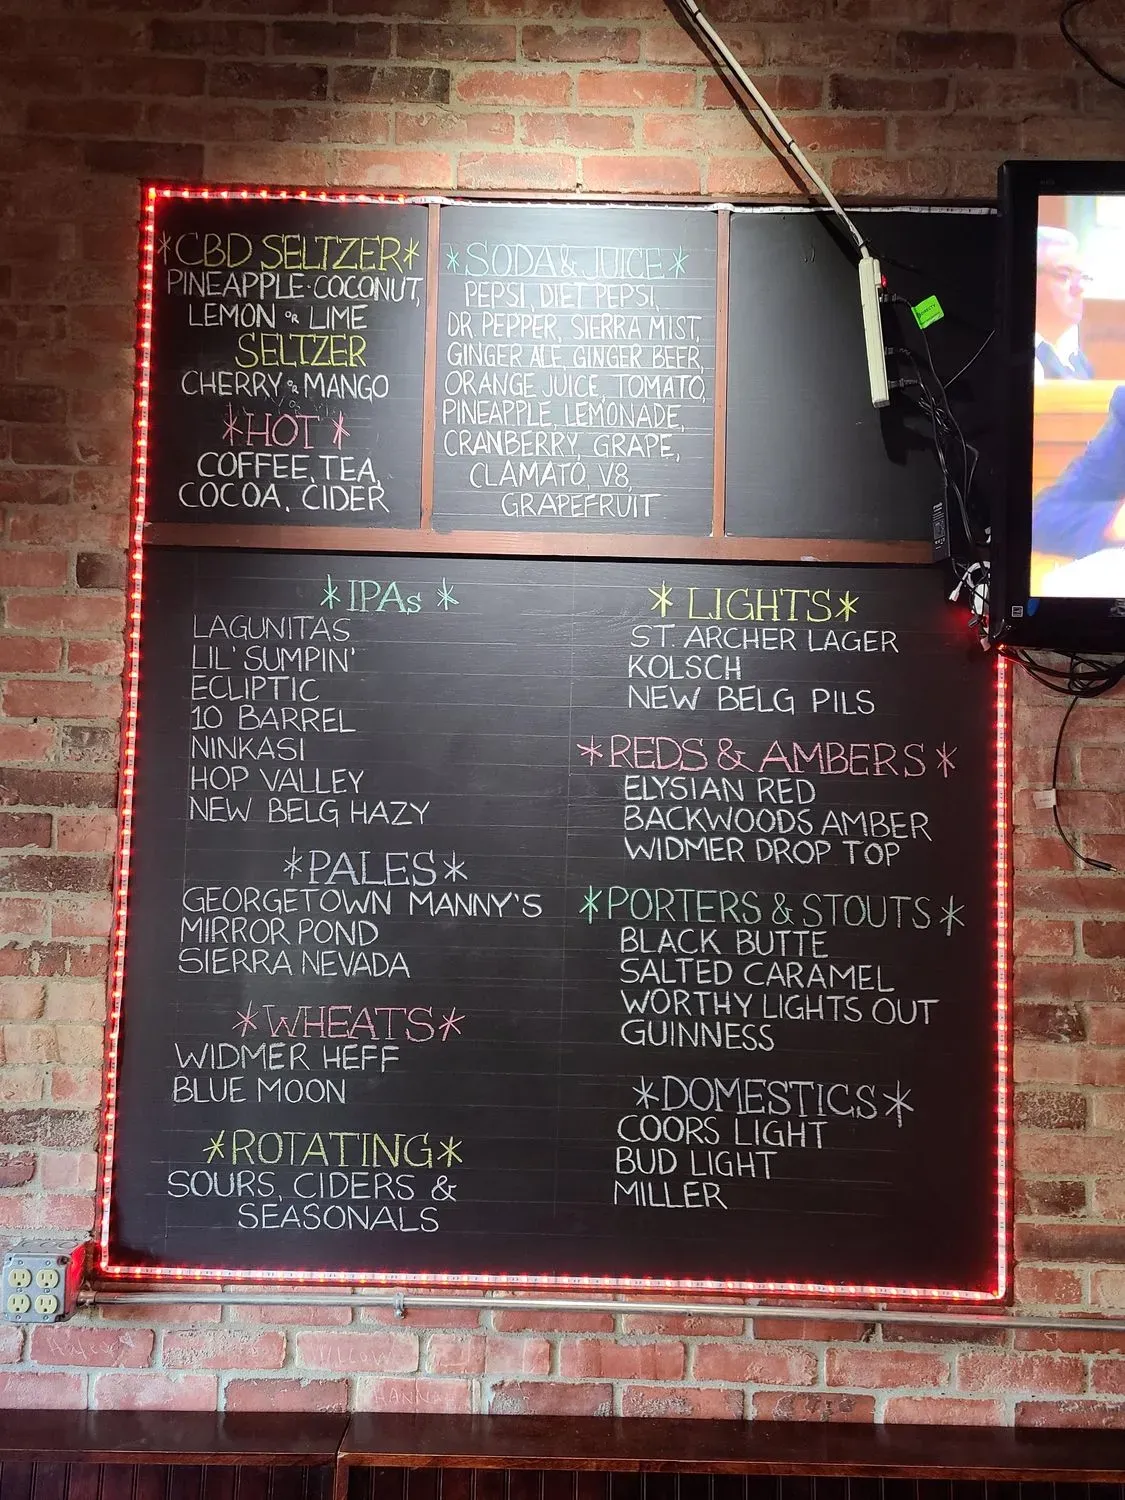 *CBD SELTZER*
PINEAPPLE·COCONUT,
LEMON OR LIME
SELTZER
CHERRY OR MANGO
*HOT*
COFFEE, TEA,
COCOA, CIDER
*SODA & JUICE*
PEPSI, DIET PEPSI,
DR. PEPPER, SIERRA MIST,
GINGER ALE, GINGER BEER,
ORANGE JUICE, TOMATO,
PINEAPPLE, LEMONADE,
CRANBERRY, GRAPE,
CLAMATO, V8,
GRAPEFRUIT
*IPAs*
LAGUNITAS
LIL' SUMPIN'
ECLIPTIC
10 BARREL
NINKASI
HOP VALLEY
NEW BELG HAZY
*PALES*
GEORGETOWN MANNY'S
MIRROR POND
SIERRA NEVADA
*WHEATS*
WIDMER HEFF
BLUE MOON
*ROTATING*
SOURS, CIDERS &
SEASONALS
*LIGHTS*
ST. ARCHER LAGER
KOLSCH
NEW BELG PILS
*REDS & AMBERS*
ELYSIAN RED
BACKWOODS AMBER
WIDMER DROP TOP
*PORTERS & STOUTS*
BLACK BUTTE
SALTED CARAMEL
WORTHY LIGHTS OUT
GUINNESS
*DOMESTICS*
COORS LIGHT
BUD LIGHT
MILLER